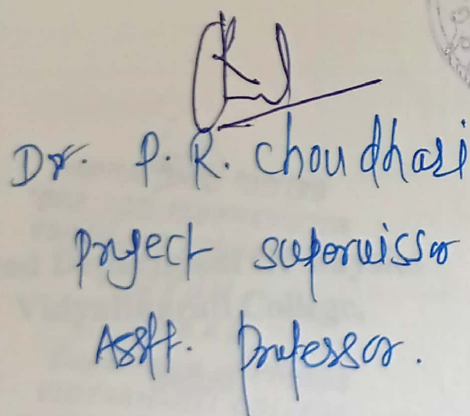 Dr. P. R. Choudhari
Project supervissor
Asstt. Professor.